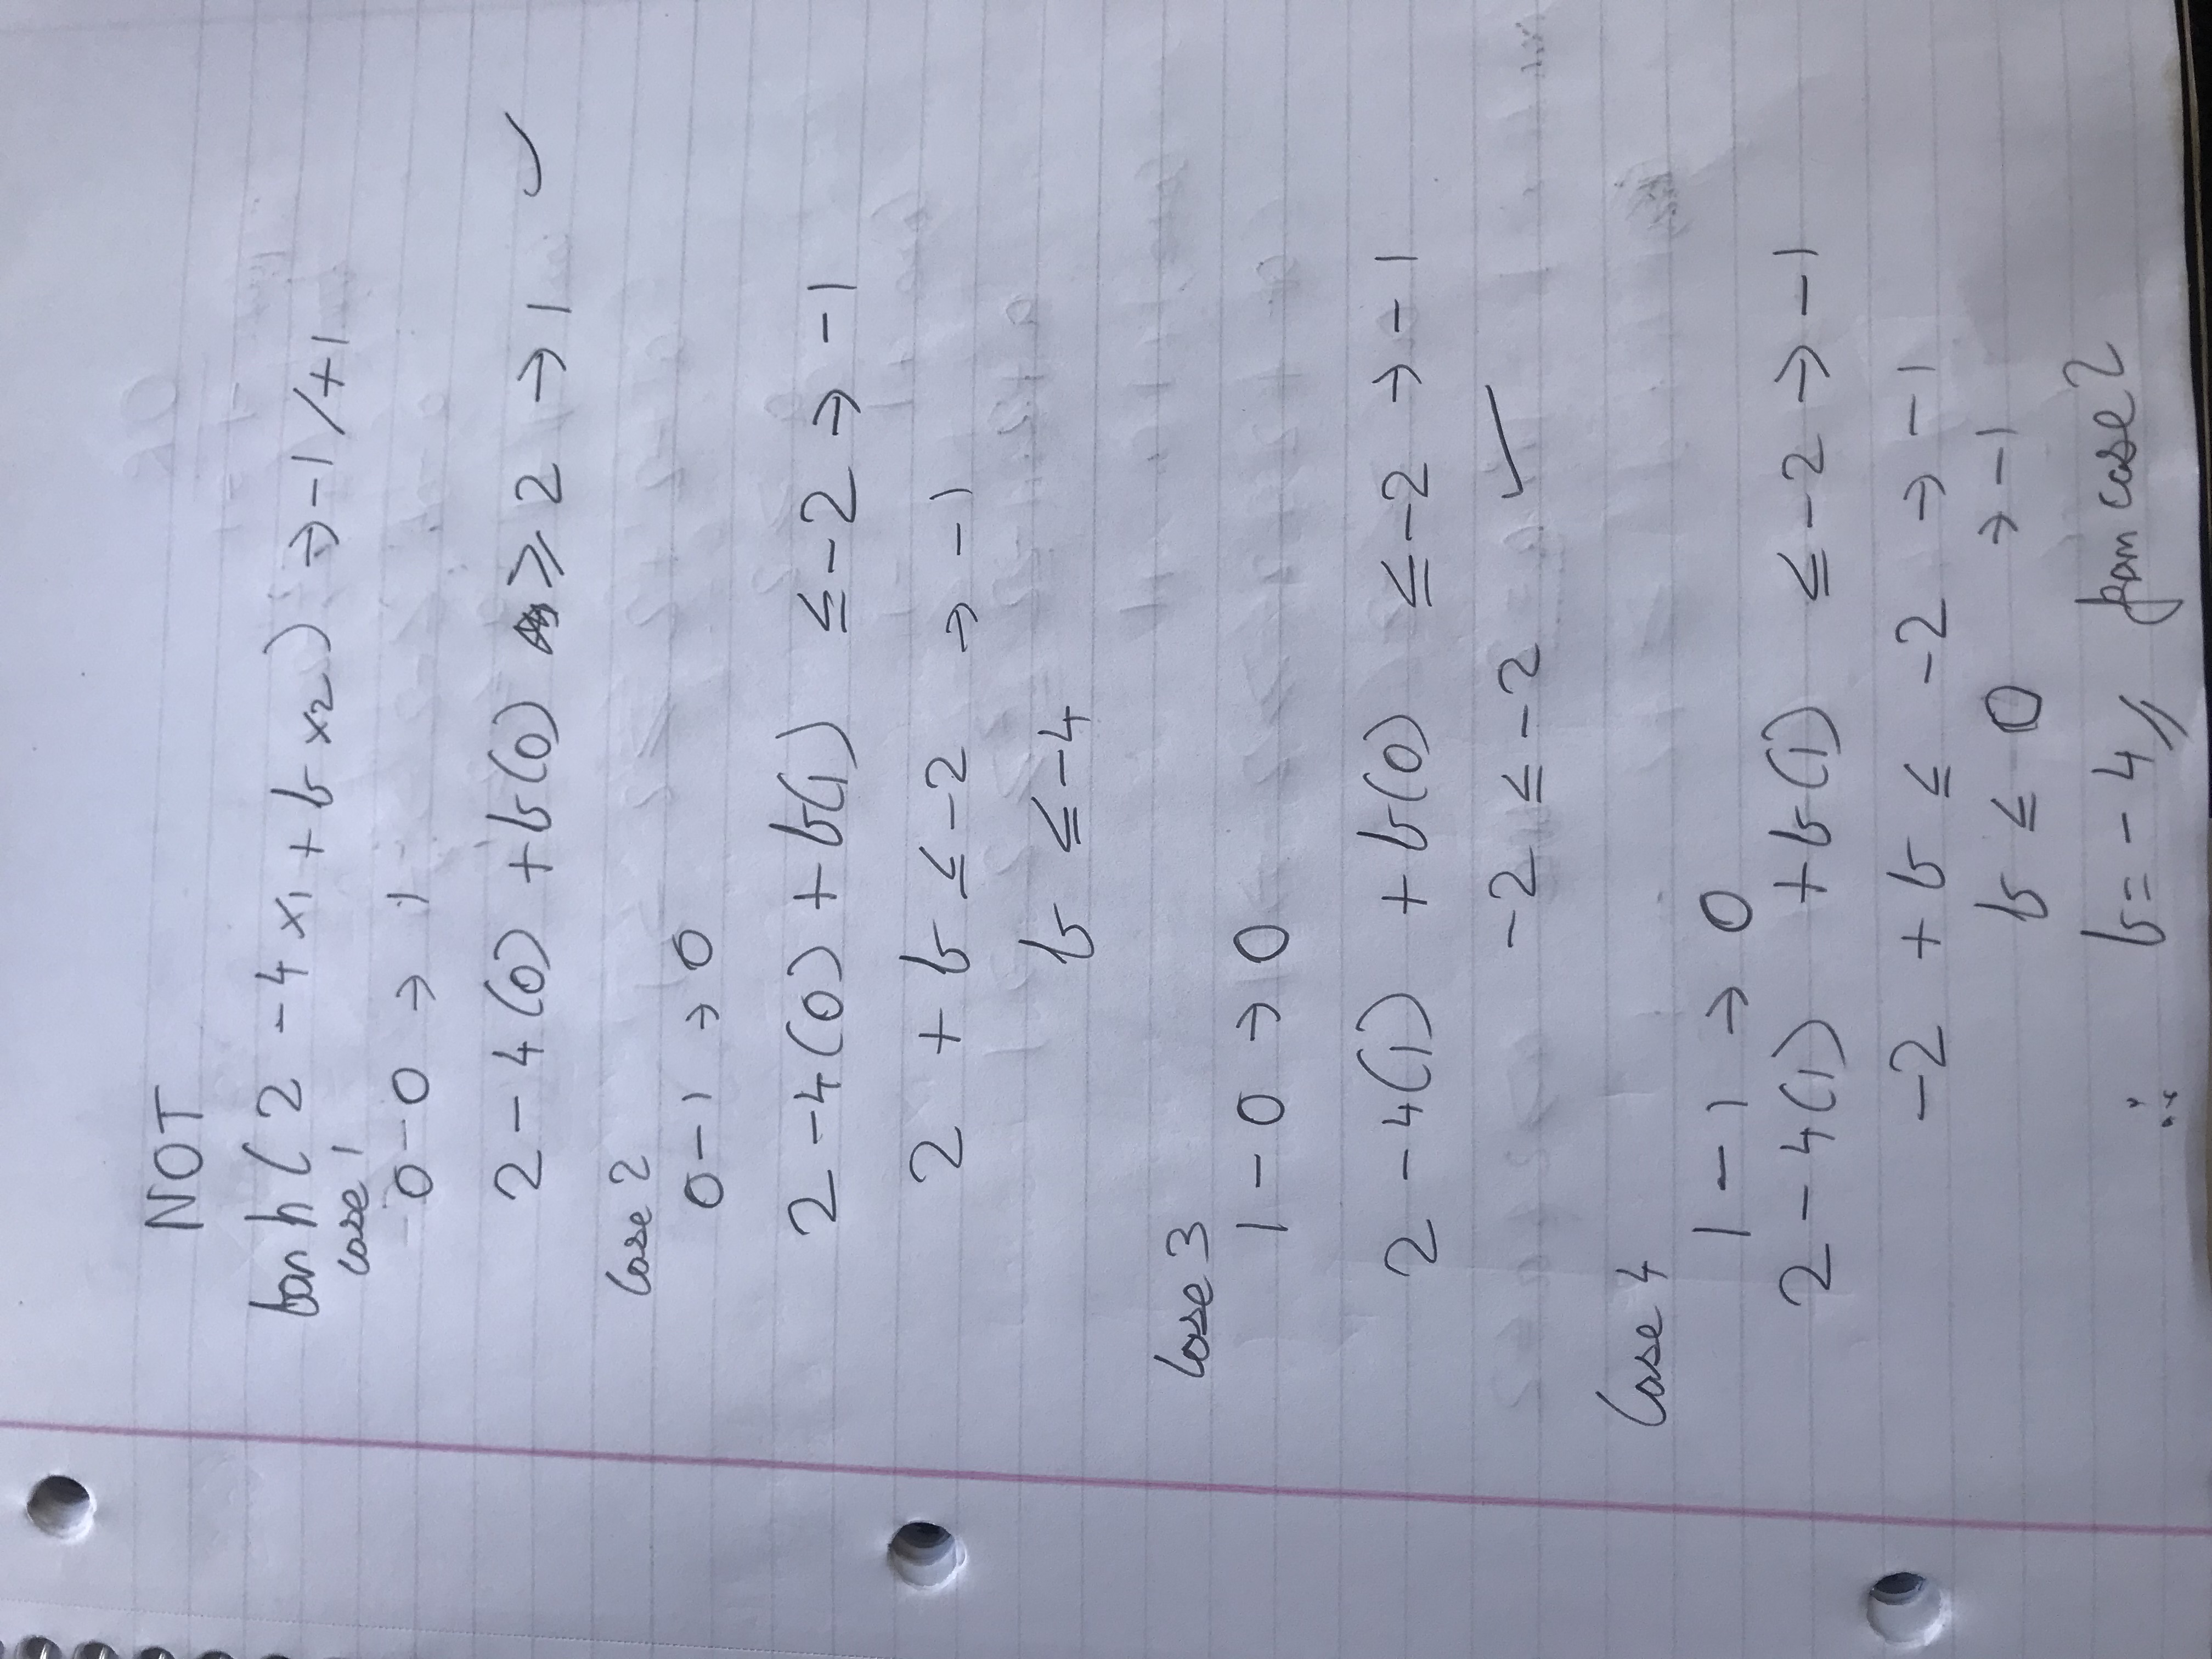 NOT
tanh ( 2 - 4 x1 + b x2 ) → -1 / +1
case 1
0 - 0 → 1
2 - 4 (0) + b (0) ≥ 2 → 1 ✓
Case 2
0 - 1 → 0
2 - 4 (0) + b(1) ≤ -2 → -1
2 + b ≤ -2 → -1
b ≤ -4
Case 3
1 - 0 → 0
2 - 4(1) + b(0) ≤ -2 → -1
-2 ≤ -2 ✓
Case 4
1 - 1 → 0
2 - 4(1) + b(1) ≤ -2 → -1
-2 + b ≤ -2 → -1
b ≤ 0 → -1
∴ b = -4 // from case 2